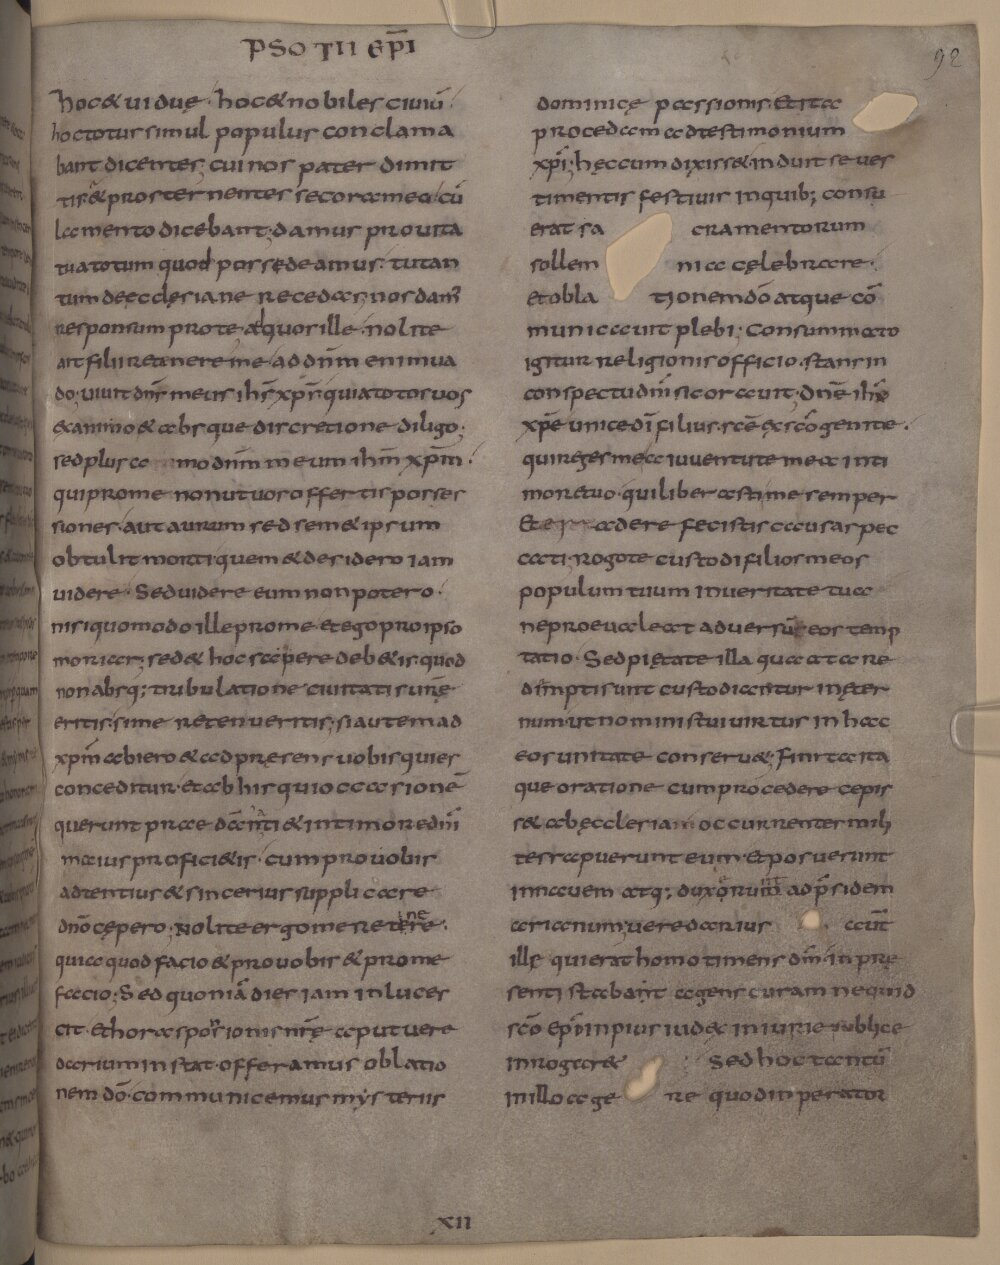 PSOTII EP̄I
92
hoc & uiduę · hoc & nobiles ciuiū ·
hoc totus simul populus conclama
bant dicentes; cui nos pater dimit
tis; & prosternentes se coram eo cū
lamento dicebant; damus pro uita
tua totum quod possedeamus · tutan
tum de ecclesia ne recedas; nos dam̄
responsum pro te · ad quos ille · nolite
ait filii retenere me · ad dn̄m enim ua
do; uiuit dn̄s meus ih̄s xp̄s · quia totos uos
ex animo & absque discretione diligo;
sed plus a mo dn̄m meum ih̄m xp̄m ·
qui pro me non ut uos offertis posses
siones · aut aurum sed sem&ipsum
obtulit morti · quem & desidero iam
uidere · Sed uidere eum non potero ·
nisi quomodo ille pro me · et ego pro ipso
moriar; sed & hoc scipere deb&is quod
non absq; tribulatione ciuitatis ur̄ę
eritis · sime retenueritis; si autem ad
xp̄m abiero & ad presens uobis quies
conceditur · et ab his qui occasionē
querunt prae danti & in timore dm̄i
maius profici&is · cum pro uobis
adtentius & sincerius supplicare
dn̄o cępero; Nolite ergo me retenere ·
quia quod facio & pro uobis & pro me
facio; Sed quoniā dies iam inluces
cit · et hora sposrionis nr̄ę aput uere
darium instat · offeramus oblatio
nem dō · communicemus mysteriis
dominicę passionis · Et ita
procedam ad testimonium
xp̄i; hęc cum dixiss& induit se ues
timentis festiuis in quib; consu
erat sa cramentorum
sollem nia cęlebrare ·
et obla tionem dō atque cō
municauit plebi; Consummato
igitur religionis officio · stans in
conspectu dm̄i sic orauit · Dn̄e ih̄u
xp̄e unice dī filius · sc̄e ex sc̄o genite ·
qui reges mea iuuentute mea in ti
more tuo · qui liberasti me semper
Et adere fecistis accusas pec
cati; Rogo te custodi filios meos
populum tuum in ueritate tua
ne preualeat aduersū eos temp
tatio · Sed pietate illa qua a ta re
dimpti sunt custodiantur in ęter
num · ut nominis tui uirtus in hac
eos unitate conseru&; Finita ita
que oratione cum procedere cepis
s& ab ecclesiam occurrentes mili
tes rapuerunt eum · Et posuerunt
in nauem atq; duxorunt ad pr̄sidem
arianum; uere darius auit̄
illę qui erat homo timens dm̄ · in prę
senti stabant agens curam ne quid
sc̄o ep̄i inpius iud&x iniurie publice
inrogar& Sed hoc tantū
in illo age re quod inperator
XII